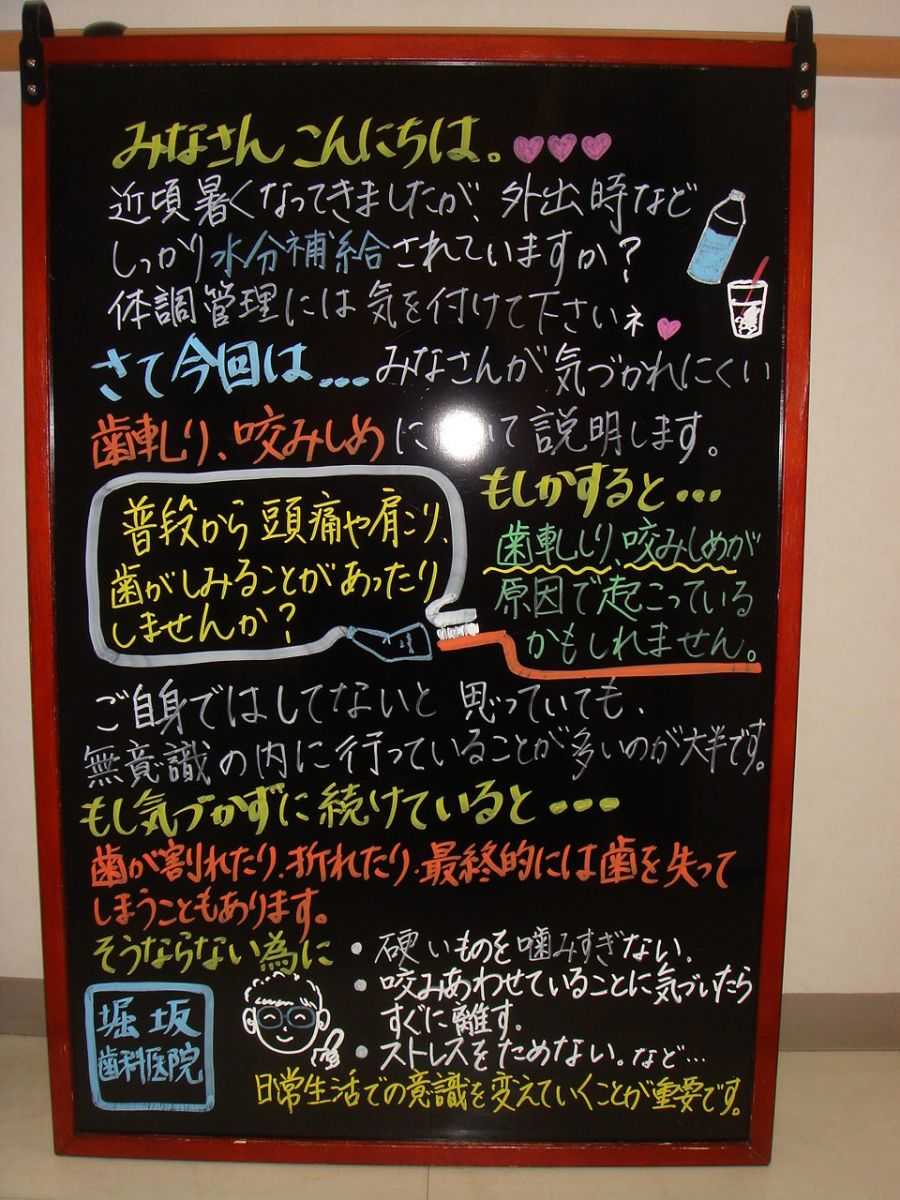 みなさん こんにちは。
近頃暑くなってきましたが、外出時など
しっかり水分補給されていますか？
体調管理には気を付けて下さいネ
さて今回は...みなさんが気づかれにくい
歯軋り、咬みしめに いて説明します。
普段から頭痛や肩こり、
歯がしみることがあったり
しませんか？
もしかすると...
歯軋り、咬みしめが
原因で起こっている
かもしれません。
ご自身ではしてないと思っていても、
無意識の内に行っていることが多いのが大半です。
もし気づかずに続けていると...
歯が割れたり、折れたり、最終的には歯を失って
しまうこともあります。
そうならない為に
・硬いものを噛みすぎない.
・咬みあわせていることに気づいたら
すぐに離す.
・ストレスをためない。など...
堀坂
歯科医院
日常生活での意識を変えていくことが重要です。